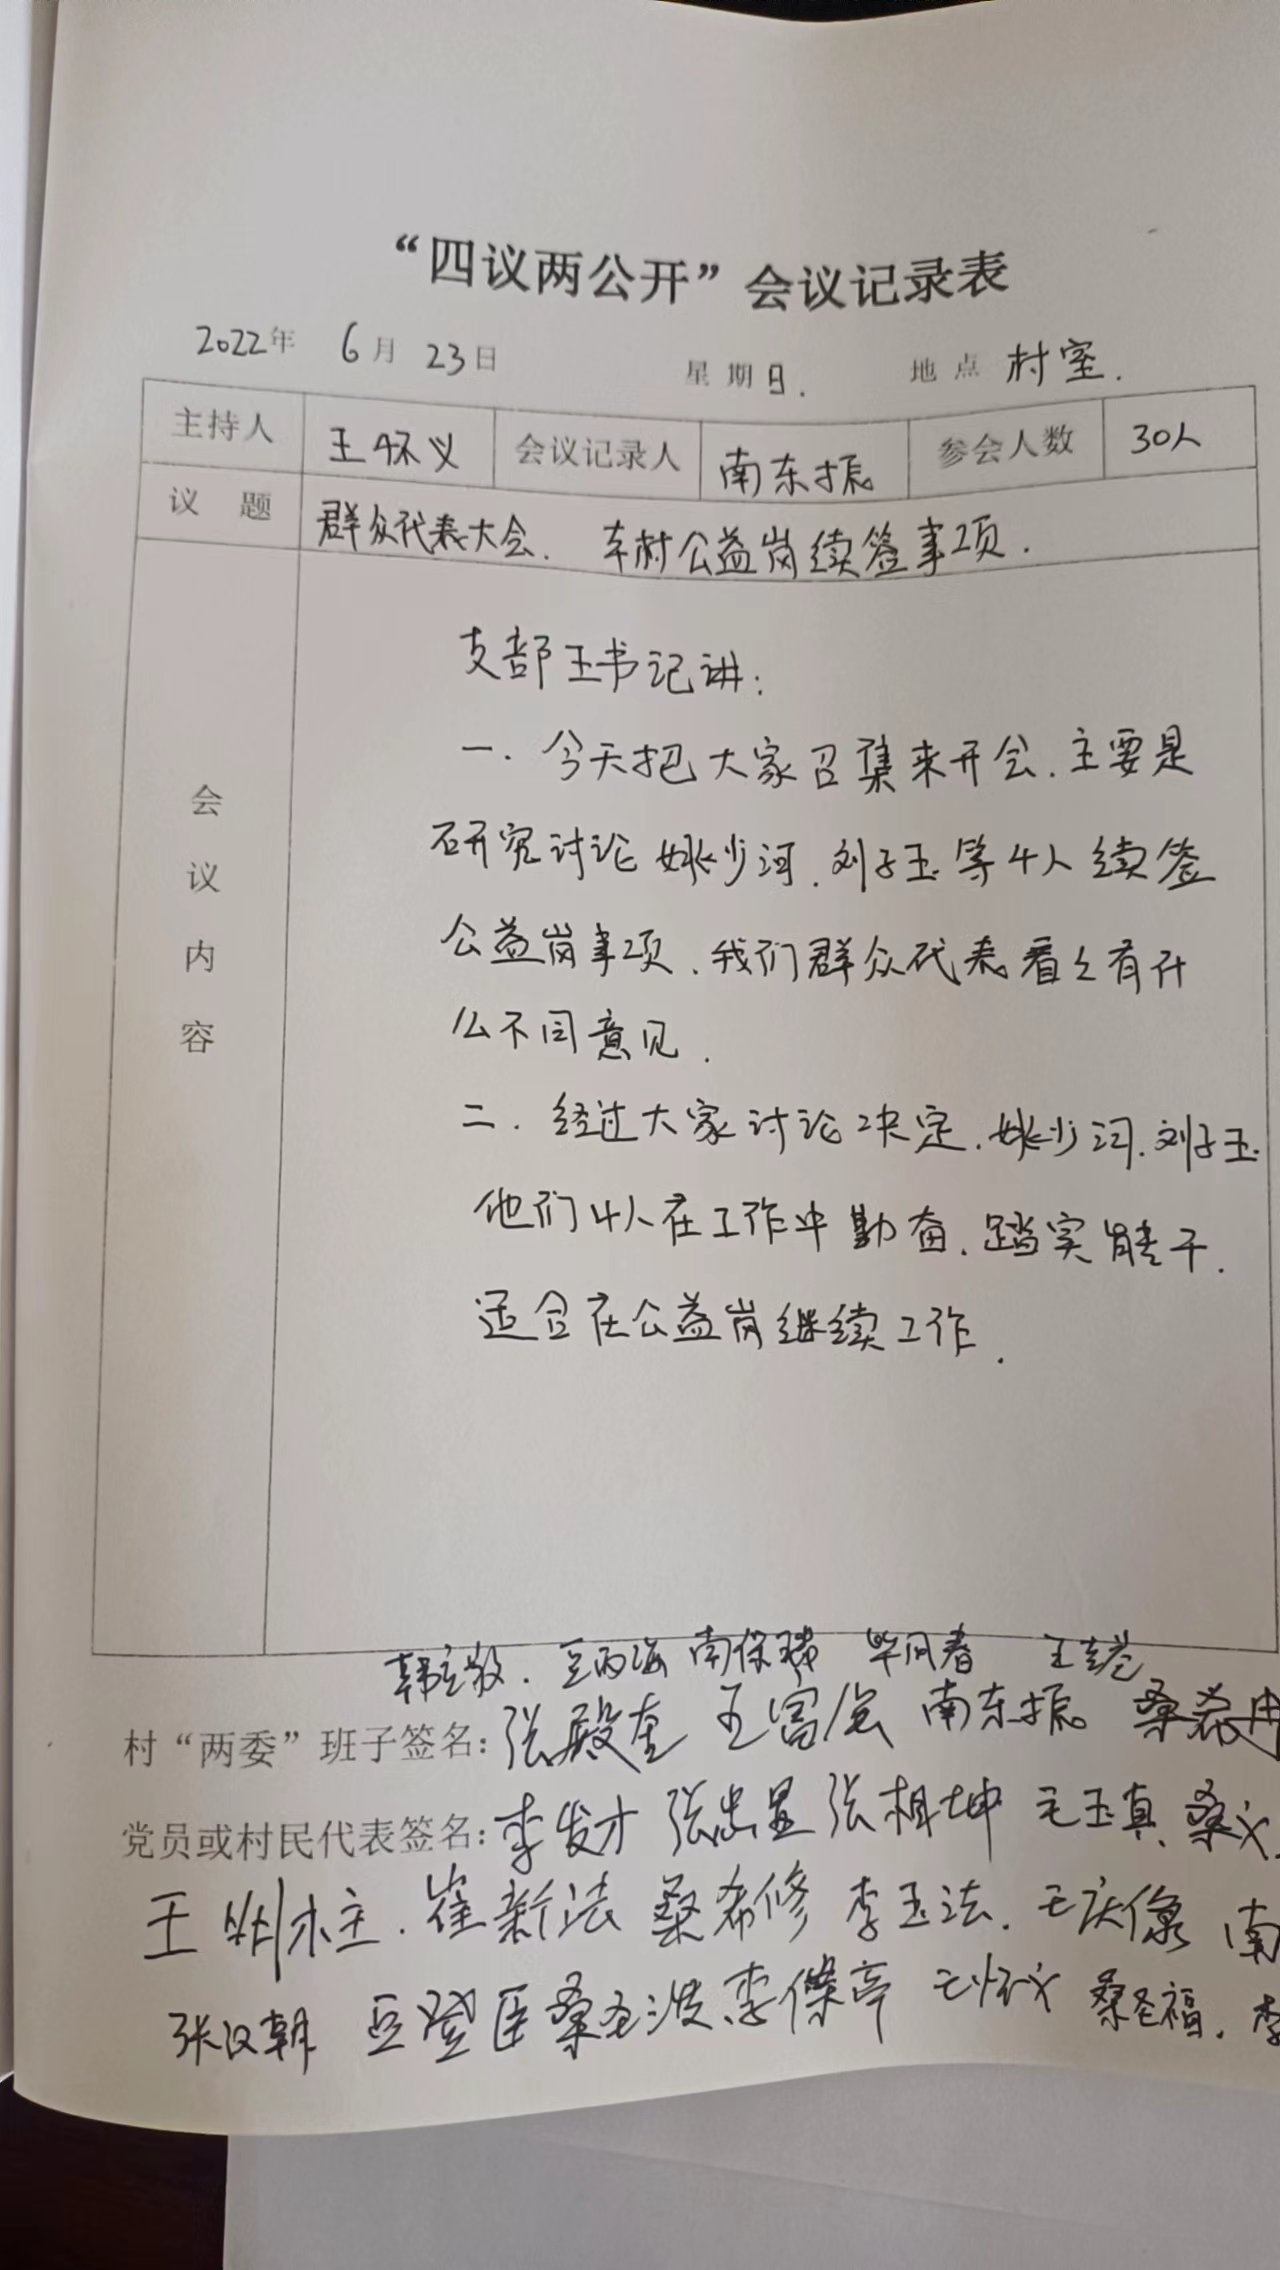 “四议两公开”会议记录表
2022年 6月 23日 星期日. 地点 村室.
主持人 王怀义 会议记录人 南东振 参会人数 30人
议题 群众代表大会. 车村公益岗续签事项.
会议内容
支部王书记讲:
一. 今天把大家召集来开会.主要是
研究讨论姚少河.刘子玉等4人续签
公益岗事项.我们群众代表看么有什
么不同意见.
二. 经过大家讨论决定.姚少河.刘子玉.
他们4人在工作中勤奋.踏实肯干.
适合在公益岗继续工作.
豆丙海 南保瑞
村“两委”班子签名: 张殿奎 王富 南东振 桑
党员或村民代表签名: 李发才 张忠显 张相坤 毛玉真. 桑义.
王 柱. 崔新法 桑希修 李玉法. 王庆像 南
张汉朝 豆登 桑圣波. 李保亭 王怀义 桑圣福. 李